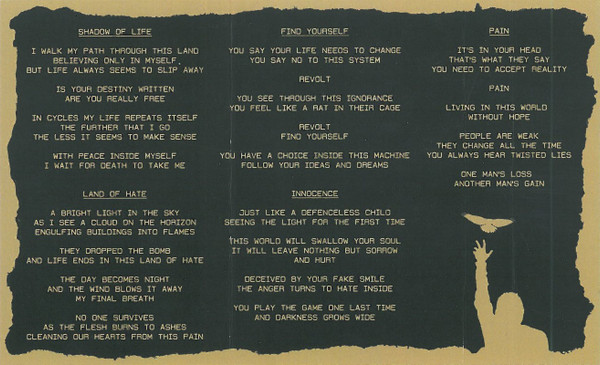 SHADOW OF LIFE
I WALK MY PATH THROUGH THIS LAND
BELIEVING ONLY IN MYSELF,
BUT LIFE ALWAYS SEEMS TO SLIP AWAY
IS YOUR DESTINY WRITTEN
ARE YOU REALLY FREE
IN CYCLES MY LIFE REPEATS ITSELF
THE FURTHER THAT I GO
THE LESS IT SEEMS TO MAKE SENSE
WITH PEACE INSIDE MYSELF
I WAIT FOR DEATH TO TAKE ME
LAND OF HATE
A BRIGHT LIGHT IN THE SKY
AS I SEE A CLOUD ON THE HORIZON
ENGULFING BUILDINGS INTO FLAMES
THEY DROPPED THE BOMB
AND LIFE ENDS IN THIS LAND OF HATE
THE DAY BECOMES NIGHT
AND THE WIND BLOWS IT AWAY
MY FINAL BREATH
NO ONE SURVIVES
AS THE FLESH BURNS TO ASHES
CLEANING OUR HEARTS FROM THIS PAIN
FIND YOURSELF
YOU SAY YOUR LIFE NEEDS TO CHANGE
YOU SAY NO TO THIS SYSTEM
REVOLT
YOU SEE THROUGH THIS IGNORANCE
YOU FEEL LIKE A RAT IN THEIR CAGE
REVOLT
FIND YOURSELF
YOU HAVE A CHOICE INSIDE THIS MACHINE
FOLLOW YOUR IDEAS AND DREAMS
INNOCENCE
JUST LIKE A DEFENCELESS CHILD
SEEING THE LIGHT FOR THE FIRST TIME
THIS WORLD WILL SWALLOW YOUR SOUL
IT WILL LEAVE NOTHING BUT SORROW
AND HURT
DECEIVED BY YOUR FAKE SMILE
THE ANGER TURNS TO HATE INSIDE
YOU PLAY THE GAME ONE LAST TIME
AND DARKNESS GROWS WIDE
PAIN
IT'S IN YOUR HEAD
THAT'S WHAT THEY SAY
YOU NEED TO ACCEPT REALITY
PAIN
LIVING IN THIS WORLD
WITHOUT HOPE
PEOPLE ARE WEAK
THEY CHANGE ALL THE TIME
YOU ALWAYS HEAR TWISTED LIES
ONE MAN'S LOSS
ANOTHER MAN'S GAIN